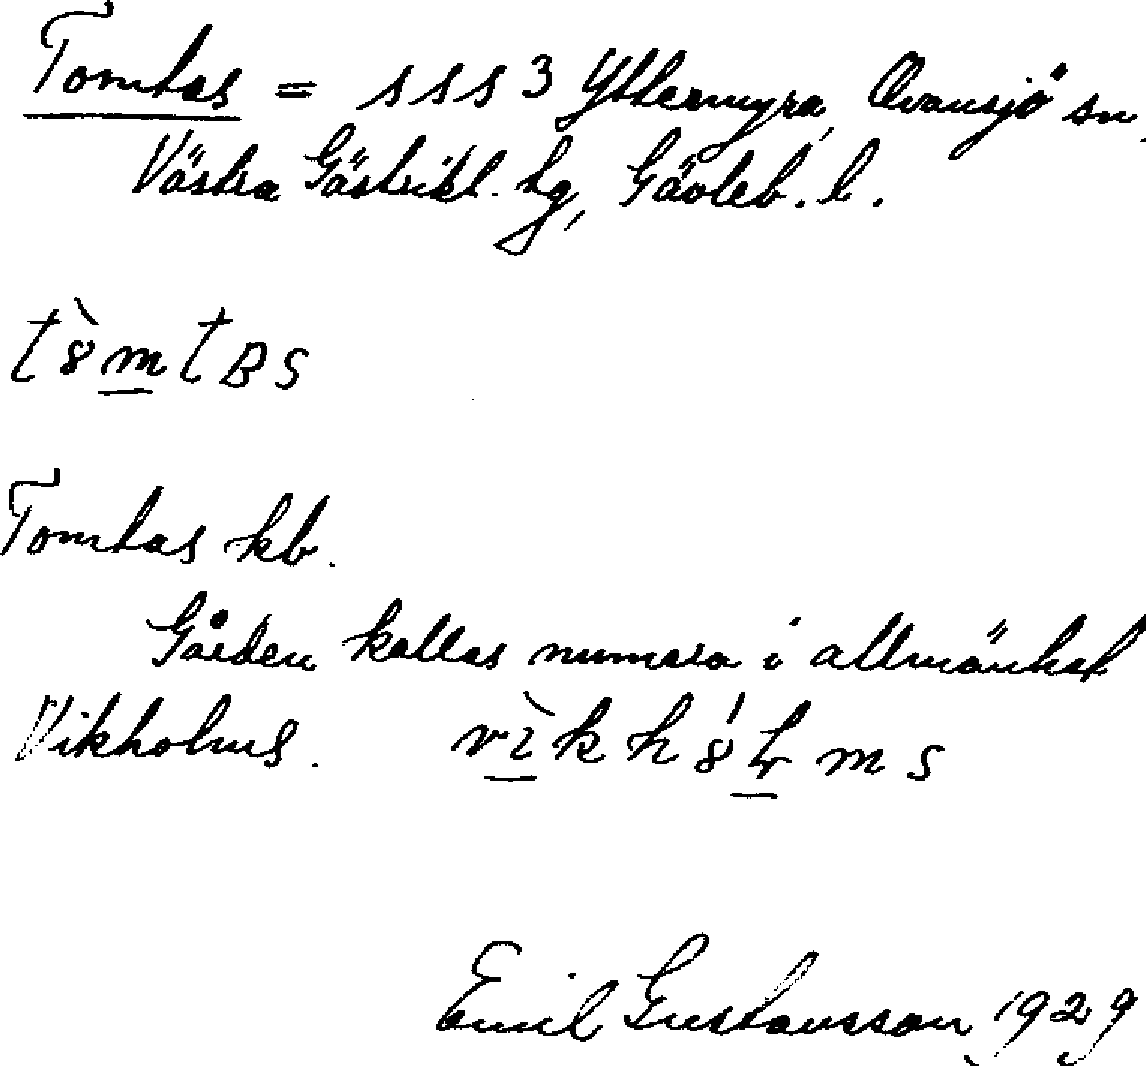 Tomtas = s s s 3 Yttermyra, Ovansjö sn,
Västra Gästrikl. hg, Gävleb. l.
t 8̀ m̲ t B S
Tomtas kb.
Gården kallas numera i allmänhet
Vikholms. v ì̲ k h 8́ l̲ m s
Emil Gustavsson, 1929